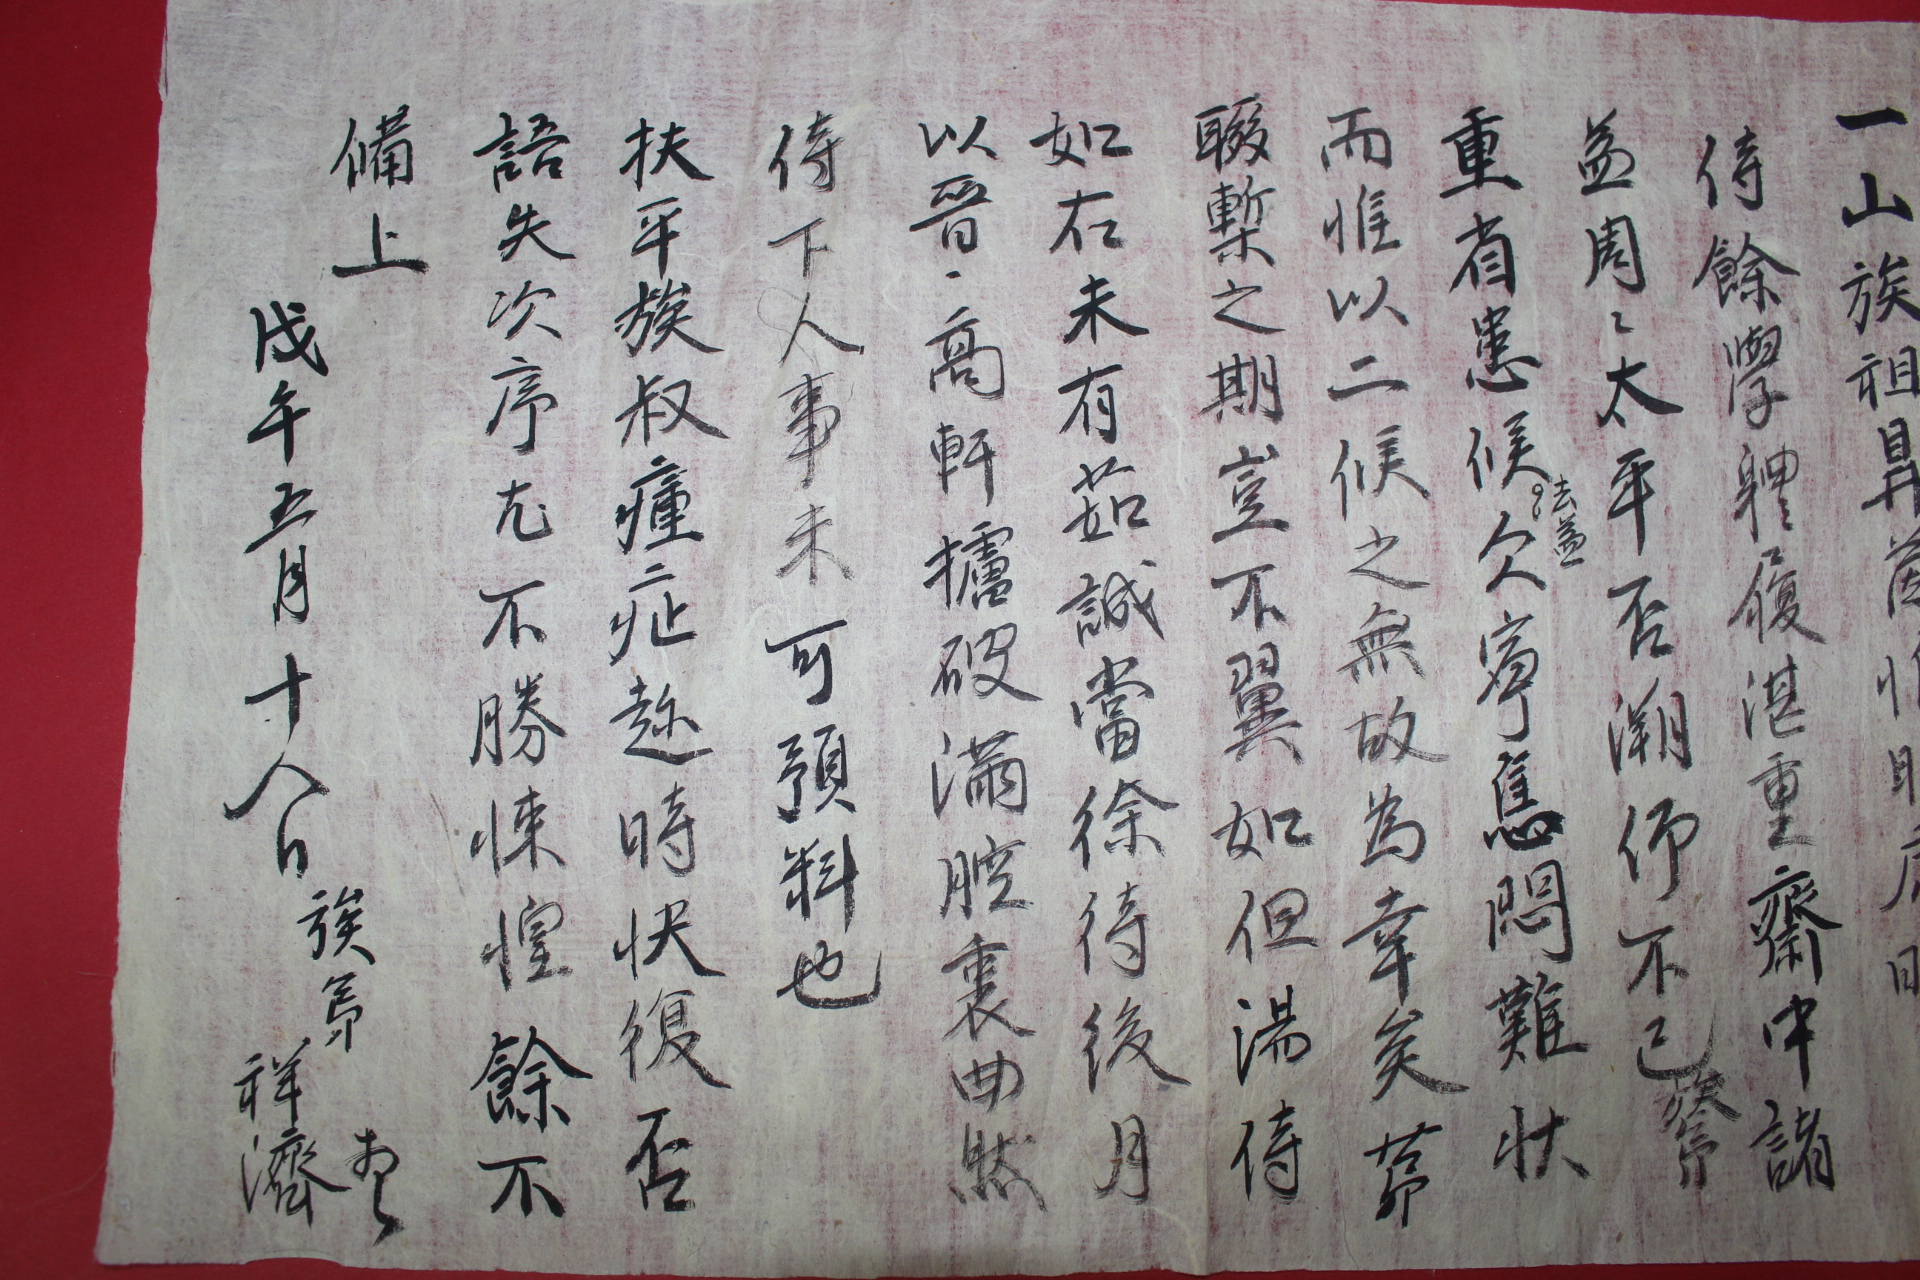 一山族祖
侍餘學體履湛重齋中諸
益周〻太平否溯仰不已族弟
重省患候欠寧蕉悶難狀
法益
而惟以二候之無故為幸矣第
聯槧之期豈不翼如但湯侍
如右未有茹誠當徐待後月
以晉高軒攄破滿腔裏曲然
侍下人事未可預料也
扶平族叔瘇症趂時快復否
語失次序尤不勝悚惶餘不
備上
戊午五月十八日
族弟
祥濟